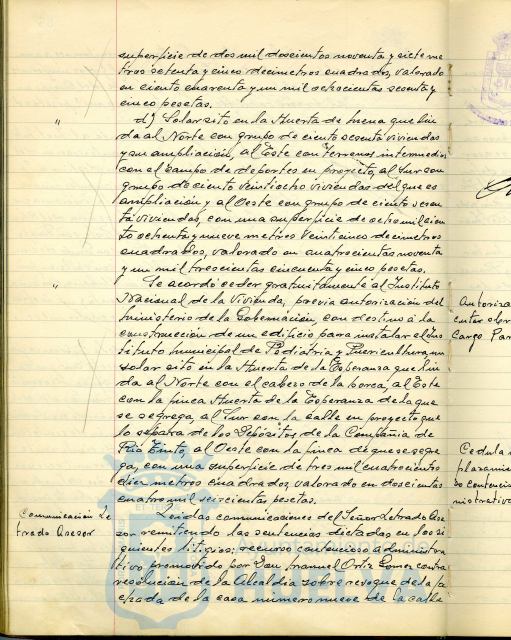 superficie de dos mil doscientos noventa y siete me
tros setenta y cinco decimetros cuadrados, valorado
en ciento cuarenta y un mil ochocientas sesenta y
cinco pesetas.
" d) Solar sito en la Huerta de Mena que lin
da al Norte con grupo de ciento sesenta viviendas
y su ampliación, al Este con terrenos intermedios
con el Campo de deportes en proyecto, al Sur con
grupo de ciento veintiocho viviendas del que es
ampliación y al Oeste con grupo de ciento sesen
ta viviendas, con una superficie de ocho mil cien
to ochenta y nueve metros veinticinco decimetros
cuadrados, valorado en cuatrocientas noventa
y un mil trescientas cincuenta y cinco pesetas.
" Se acordó ceder gratuitamente al Instituto
Nacional de la Vivienda, previa autorización del
Ministerio de la Gobernación, con destino a la
construcción de un edificio para instalar el Ins
tituto municipal de Pediatria y Puericultura, un
solar sito en la Huerta de la Esperanza que lin
da al Norte con el cabezo de la horca, al Este
con la finca Huerta de la Esperanza de la que
se segrega, al Sur con la calle en proyecto que
lo separa de los Depósitos de la Compañia de
Rio Tinto, al Oeste con la finca de que se segre
ga, con una superficie de tres mil cuatrocientos
diez metros cuadrados, valorado en doscientas
cuatro mil seiscientas pesetas.
Comunicación Le
trado Asesor
Leidas comunicaciones del Señor Letrado Ase
sor remitiendo las sentencias dictadas en los si
guientes litigios: recurso contencioso administra
tivo promovido por Don Manuel Ortiz Gomez contra
resolución de la Alcaldia sobre revoque de la fa
chada de la casa numero nueve de la calle
Autoriza
cutar obr
cargo Par
Cedula
plazamie
do contencio
nistrativo